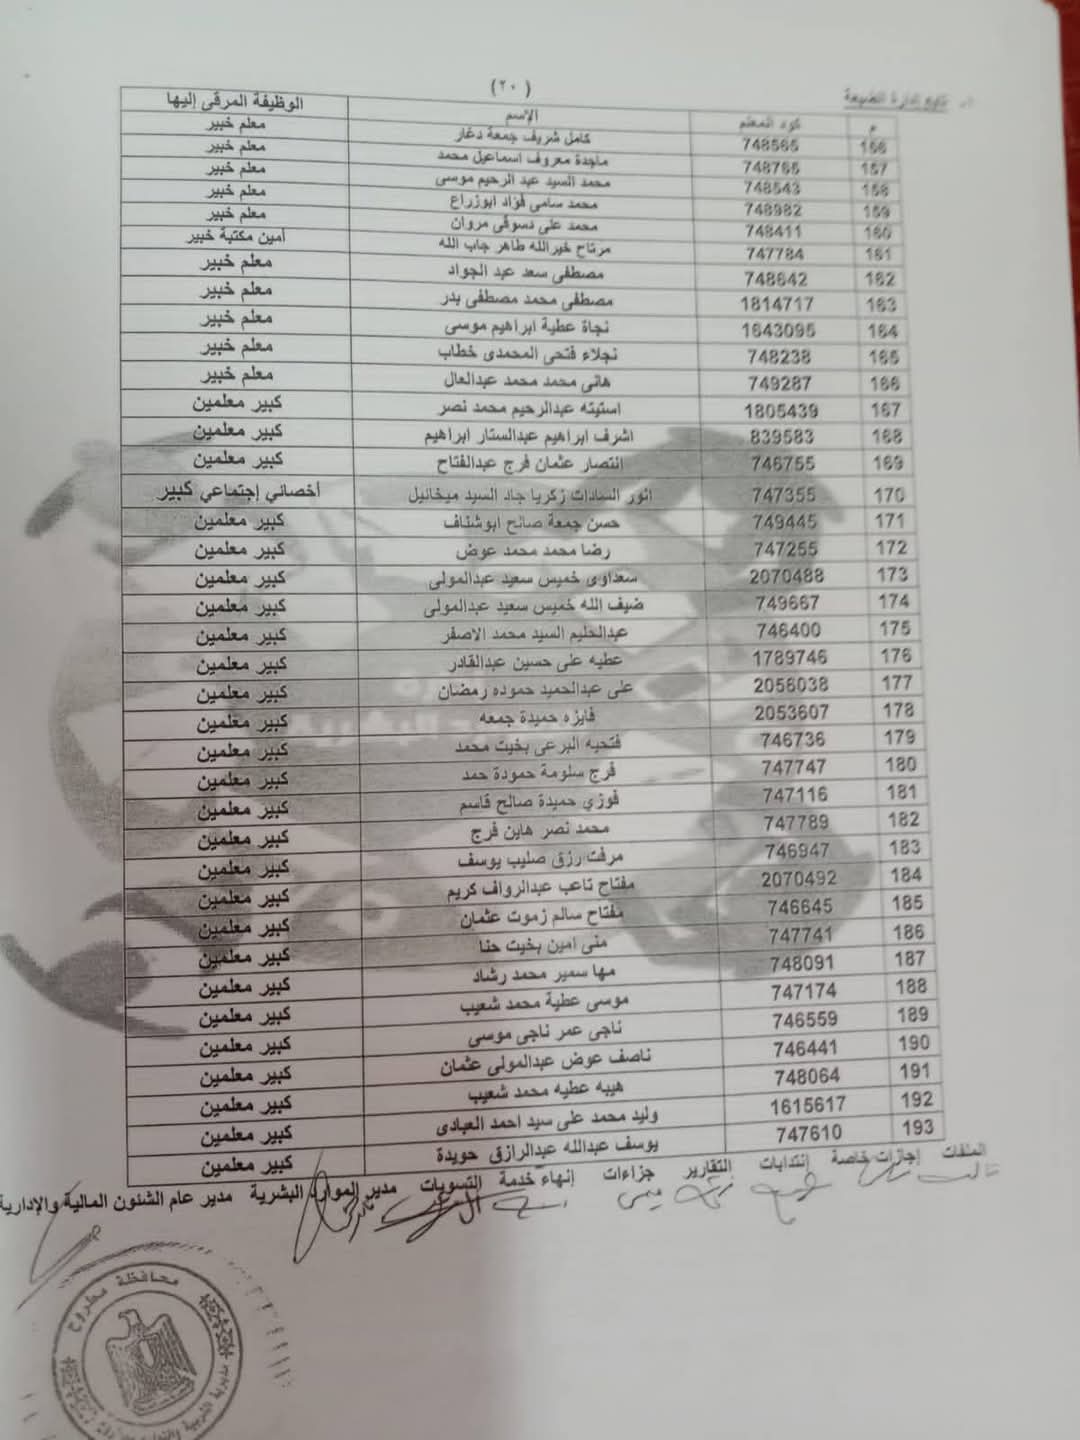 (٢٠)
تابع إدارة الضبعة
م كود المعلم الإسم الوظيفة المرقى إليها
156 748565 كامل شريف جمعة دغار معلم خبير
157 748765 ماجدة معروف اسماعيل محمد معلم خبير
158 748543 محمد السيد عبد الرحيم موسى معلم خبير
159 748982 محمد سامى فؤاد ابوزراع معلم خبير
160 748411 محمد على دسوقى مروان معلم خبير
161 747784 مرتاح خيرالله طاهر جاب الله أمين مكتبة خبير
162 748642 مصطفى سعد عبد الجواد معلم خبير
163 1814717 مصطفى محمد مصطفى بدر معلم خبير
164 1643095 نجاة عطية ابراهيم موسى معلم خبير
165 748238 نجلاء فتحى المحمدى خطاب معلم خبير
166 749287 هانى محمد محمد عبدالعال معلم خبير
167 1805439 استيته عبدالرحيم محمد نصر كبير معلمين
168 839583 اشرف ابراهيم عبدالستار ابراهيم كبير معلمين
169 746755 انتصار عثمان فرج عبدالفتاح كبير معلمين
170 747355 انور السادات زكريا جاد السيد ميخائيل أخصائي إجتماعي كبير
171 749445 حسن جمعة صالح ابوشناف كبير معلمين
172 747255 رضا محمد محمد عوض كبير معلمين
173 2070488 سعداوى خميس سعيد عبدالمولى كبير معلمين
174 749667 ضيف الله خميس سعيد عبدالمولى كبير معلمين
175 746400 عبدالحليم السيد محمد الاصفر كبير معلمين
176 1789746 عطيه على حسين عبدالقادر كبير معلمين
177 2056038 على عبدالحميد حموده رمضان كبير معلمين
178 2053607 فايزه حميدة جمعه كبير معلمين
179 746736 فتحيه البرعى بخيت محمد كبير معلمين
180 747747 فرج سلومة حمودة حمد كبير معلمين
181 747116 فوزي حميدة صالح قاسم كبير معلمين
182 747789 محمد نصر هاين فرج كبير معلمين
183 746947 مرفت رزق صليب يوسف كبير معلمين
184 2070492 مفتاح تاعب عبدالرواف كريم كبير معلمين
185 746645 مفتاح سالم زموت عثمان كبير معلمين
186 747741 منى امين بخيت حنا كبير معلمين
187 748091 مها سمير محمد رشاد كبير معلمين
188 747174 موسى عطية محمد شعيب كبير معلمين
189 746559 ناجى عمر ناجى موسى كبير معلمين
190 746441 ناصف عوض عبدالمولى عثمان كبير معلمين
191 748064 هيبه عطيه محمد شعيب كبير معلمين
192 1615617 وليد محمد على سيد احمد العبادى كبير معلمين
193 747610 يوسف عبدالله عبدالرازق حويدة كبير معلمين
الملفات إجازات خاصة إنتدابات التقارير جزاءات إنهاء خدمة التسويات مدير الموارد البشرية مدير عام الشئون المالية والإدارية
محافظة مطروح